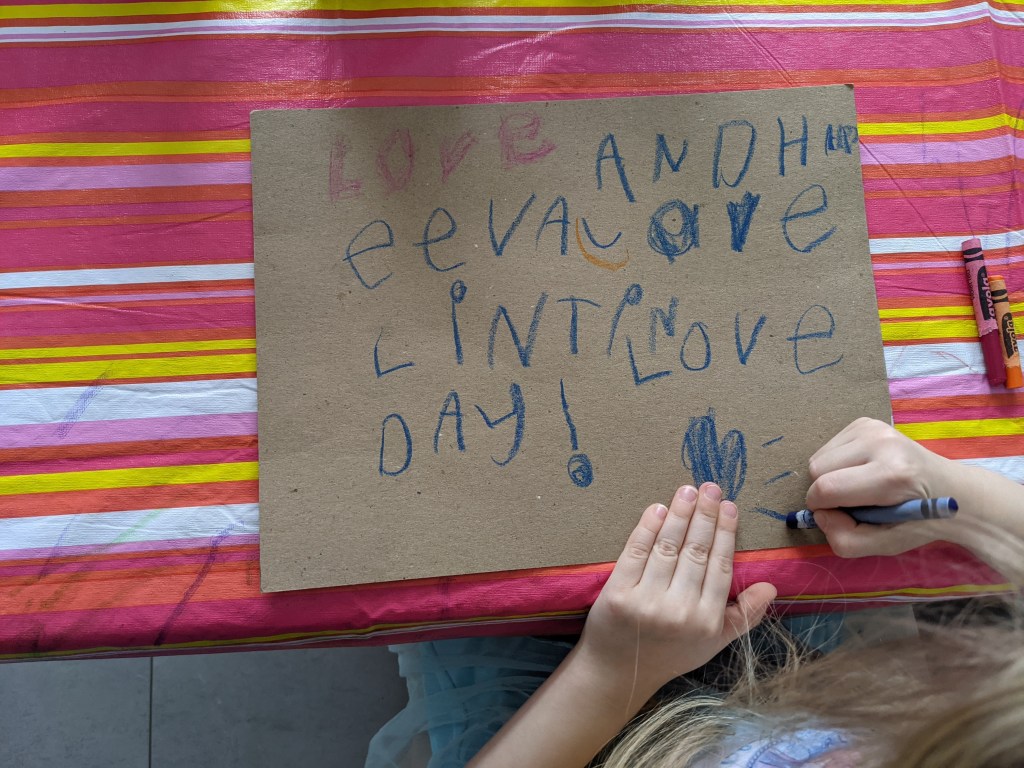 LOVE ANDH
eeVA Love
LiNTiN LOVe
DAY!